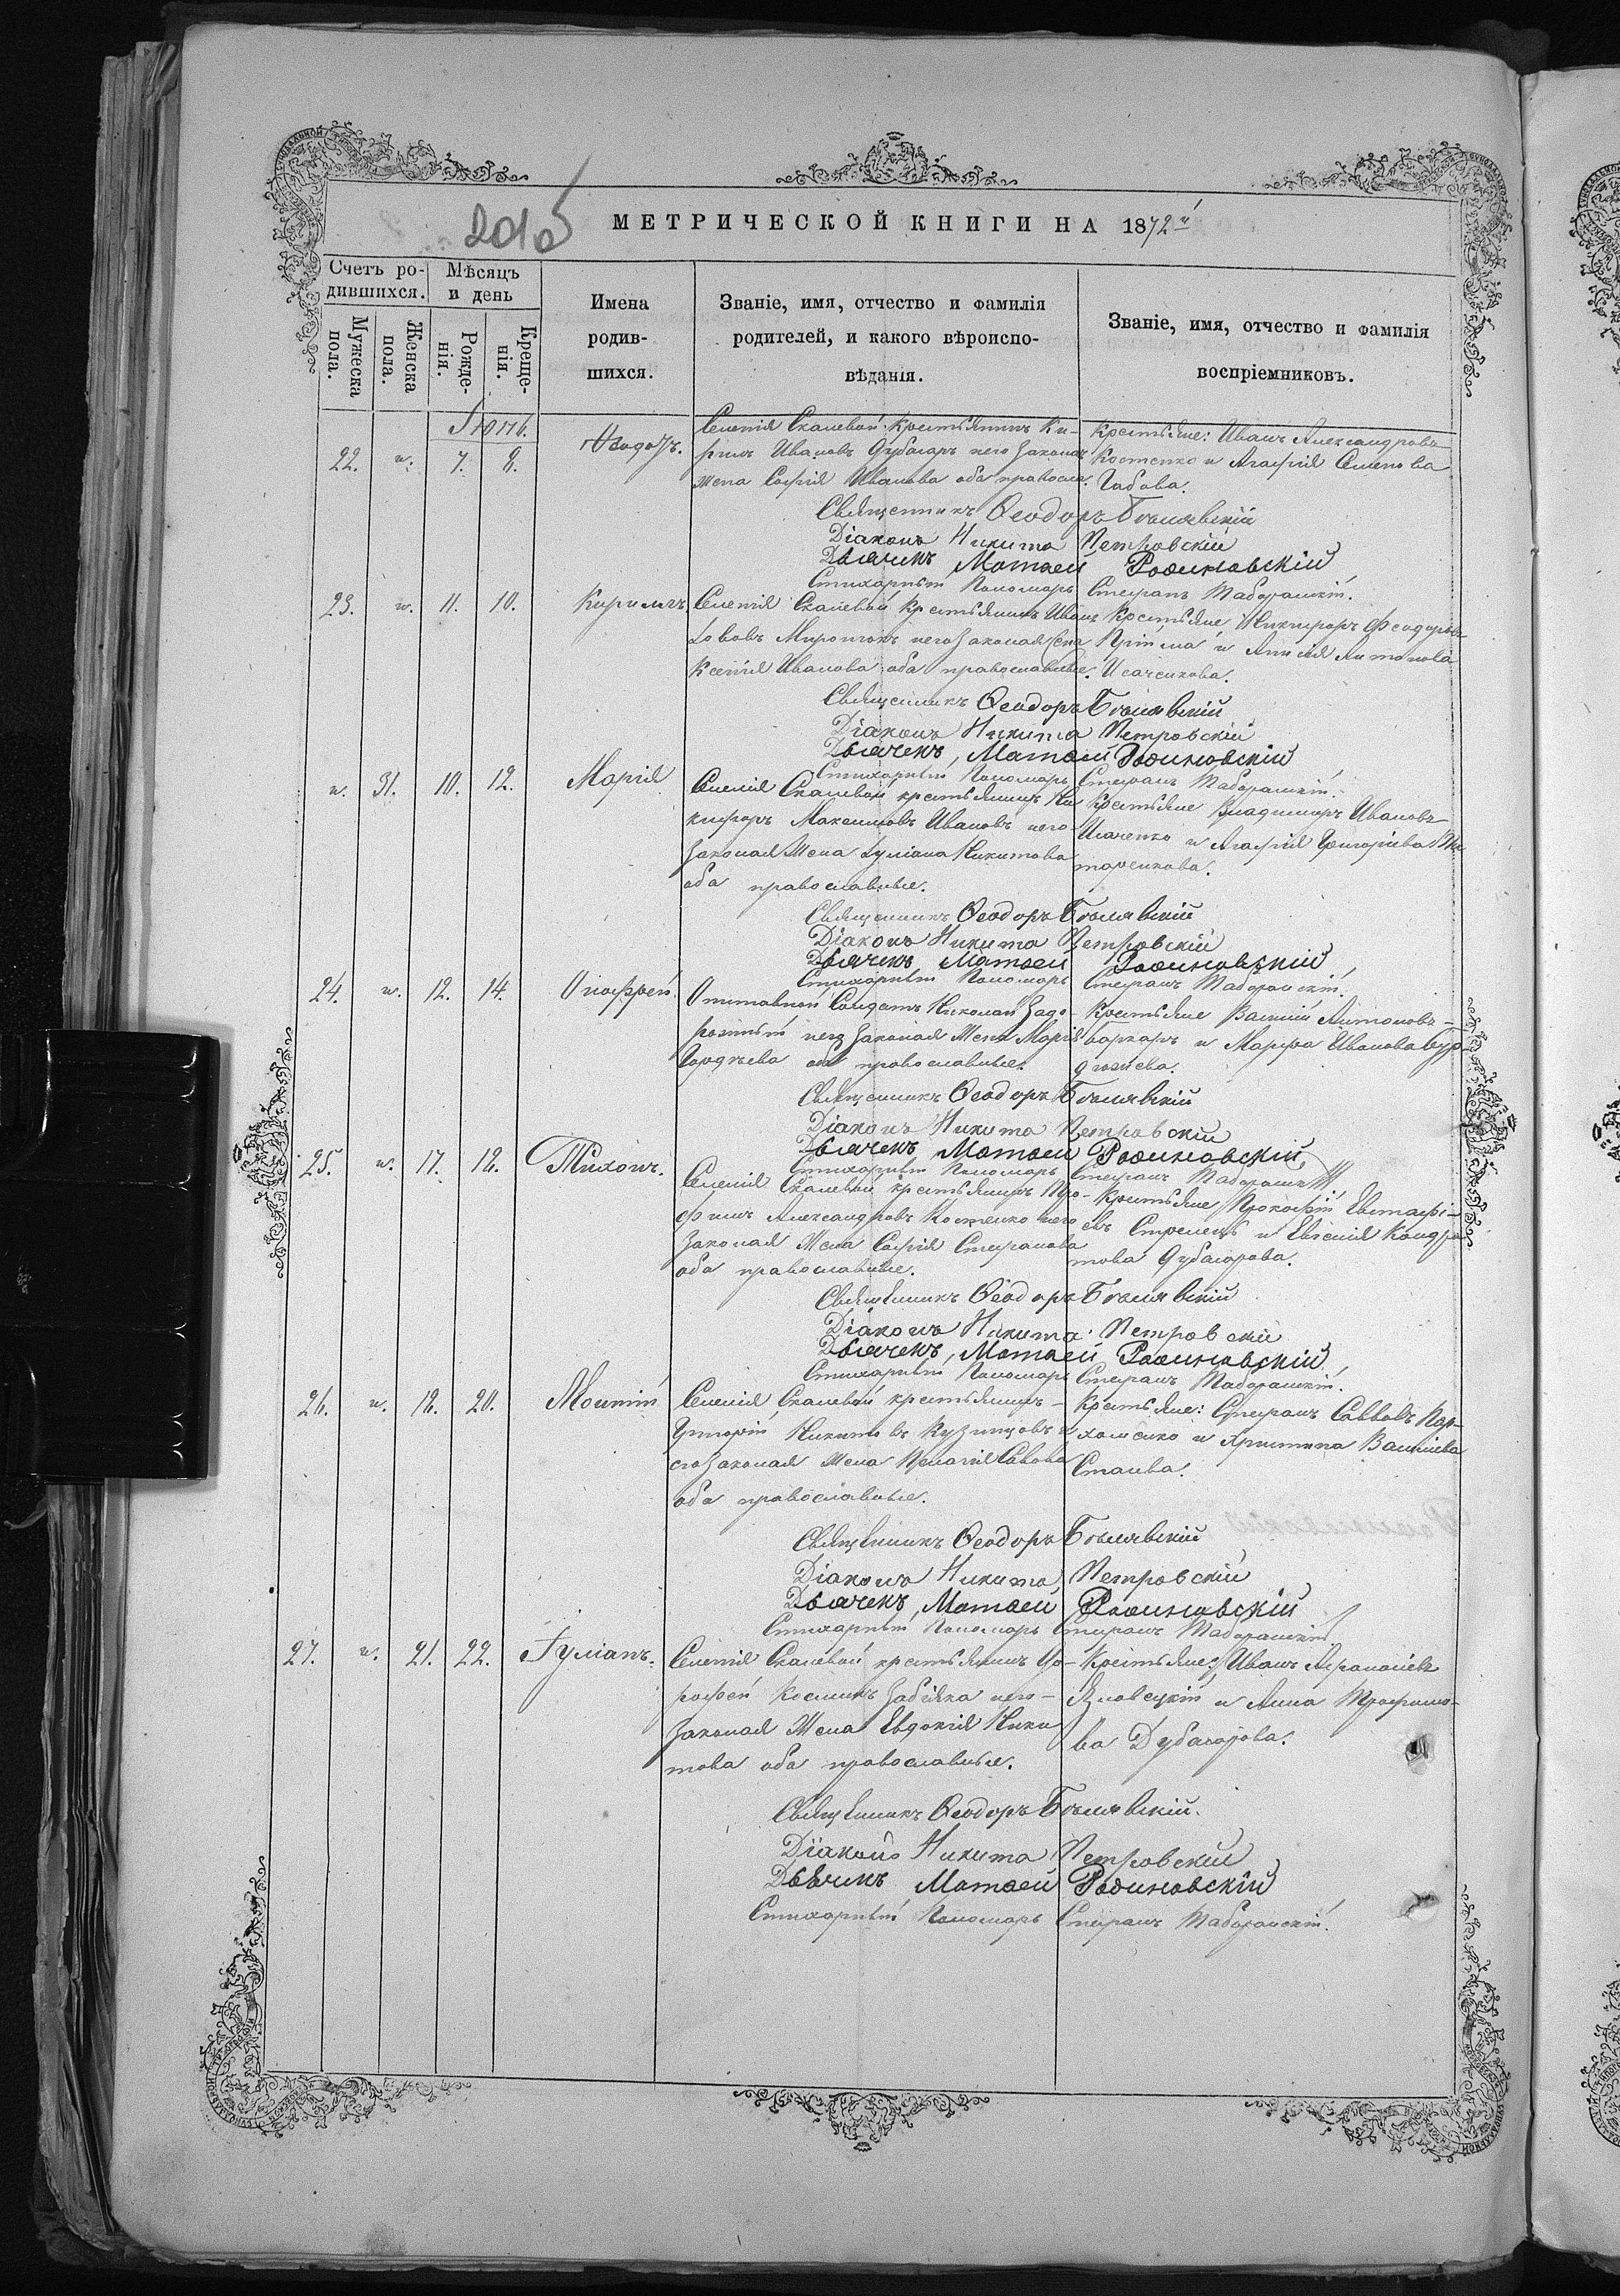 МЕТРИЧЕСКОЙ КНИГИ НА 1872й
Счетъ ро-
дившихся.
Мѣсяцъ
и день
Мужеска
пола.
Женска
пола.
Рожде-
нія.
Креще-
нія.
Имена
родив-
шихся.
Званіе, имя, отчество и фамилія
родителей, и какого вѣроиспо-
вѣданія.
Званіе, имя, отчество и фамилія
воспріемниковъ.
22. 7. 8. Ѳеодоръ.
Селенія Скалевой крестьянинъ Ки-
рилъ Ивановъ Дубаларъ и его законая
жена Софія Иванова оба православ.
Крестьяне: Иванъ Александровъ
Костенко и Агафія Семенова
Священникъ Ѳеодоръ Бѣлявскій
Діаконъ Никита Петровскій
Дьячекъ, Матѳей
Стихарный Пономарь Стефанъ
23. 11. 10. Кирилъ.
Селенія Скалевой Крестьянинъ Иванъ
и его законая жена
Ксенія Иванова оба православные.
Крестьяне Никифоръ Феодоровъ
Пріима и Антонова
Исаченкова.
Священникъ Ѳеодоръ Бѣлявскій
Діаконъ Никита Петровскій
Дьячекъ, Матѳей
Стихарный Пономарь Стефанъ
31. 10. 12. Марія
Селенія Скалевой крестьянинъ Ни-
кифоръ Максимовъ Ивановъ и его
законая жена Іуліана Никитова
оба православные.
Крестьяне Владимиръ Ивановъ
Исаченко и Агафія Григоріева
Священникъ Ѳеодоръ Бѣлявскій
Діаконъ Никита Петровскій
Дьячекъ Матѳей
Стихарный Пономарь Стефанъ
24. 12. 14. Онофрей.
Солдатъ Николай Задо-
рожный и его законая жена Марія
Гордѣева оба православные.
Крестьяне Василій Антоновъ
и Марфа Иванова
Священникъ Ѳеодоръ Бѣлявскій
Діаконъ Никита Петровскій
Дьячекъ Матѳей
Стихарный Пономарь Стефанъ
25. 17. 18. Тихонъ.
Селенія Скалевой крестьянинъ Тро-
фимъ Александровъ Костенко и его
законая жена Софія Стефанова
оба православные.
Крестьяне Прокофій Евстафі-
евъ Стрелецъ и Евгенія Кондра-
това Дубаларова.
Священникъ Ѳеодоръ Бѣлявскій
Діаконъ Никита Петровскій
Дьячекъ, Матѳей
Стихарный Пономарь Стефанъ
26. 18. 20. Моисей
Селенія Скалевой крестьянинъ
Григорій Никитовъ Кузнецовъ и
его законая жена Пелагія Савова
оба православные.
Крестьяне: Стефанъ Саввовъ Пар-
хоменко и Христина Василіева
Священникъ Ѳеодоръ Бѣлявскій
Діаконъ Никита Петровскій
Дьячекъ, Матѳей
Стихарный Пономарь Стефанъ
27. 21. 22. Іуліанъ.
Селенія Скалевой крестьянинъ До-
рофей Косминъ Забіяка и его
законая жена Евдокія Ники-
това оба православные.
Крестьяне: Иванъ Афанасіевъ
и Анна Трофимо-
ва Дубаларова.
Священникъ Ѳеодоръ Бѣлявскій.
Діаконъ Никита Петровскій
Дьячекъ Матѳей
Стихарный Пономарь Стефанъ